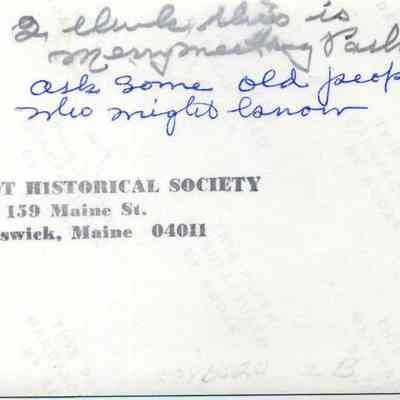 I think this is
Merrymeeting Park
ask some old peop
who might know
T HISTORICAL SOCIETY
159 Maine St.
swick, Maine 04011
B